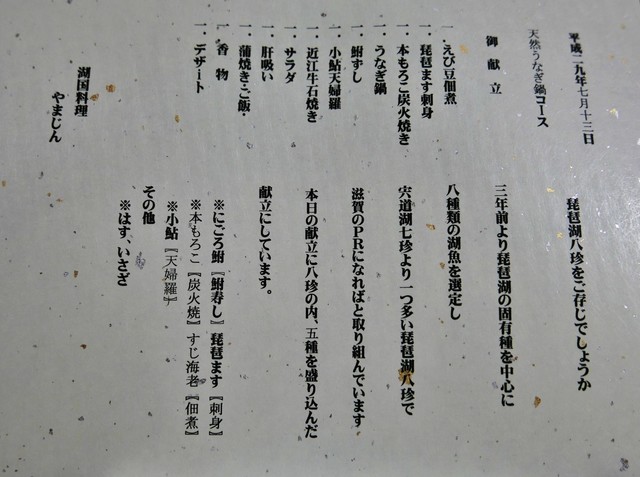 平成二九年七月十三日
天然うなぎ鍋コース
御献立
一.えび豆佃煮
一.琵琶ます刺身
一.本もろこ炭火焼き
一.うなぎ鍋
一.鮒ずし
一.小鮎天婦羅
一.近江牛石焼き
一.サラダ
一.肝吸い
一.蒲焼きご飯.
一.香物
一.デザート
湖国料理
やまじん
琵琶湖八珍をご存じでしょうか
三年前より琵琶湖の固有種を中心に
八種類の湖魚を選定し
宍道湖七珍より一つ多い琵琶湖八珍で
滋賀のPRになればと取り組んでいます
本日の献立に八珍の内、五種を盛り込んだ
献立にしています。
※にごろ鮒『鮒寿し』琵琶ます『刺身』
※本もろこ『炭火焼』すじ海老『佃煮』
※小鮎『天婦羅』
その他
※はす、いさざ